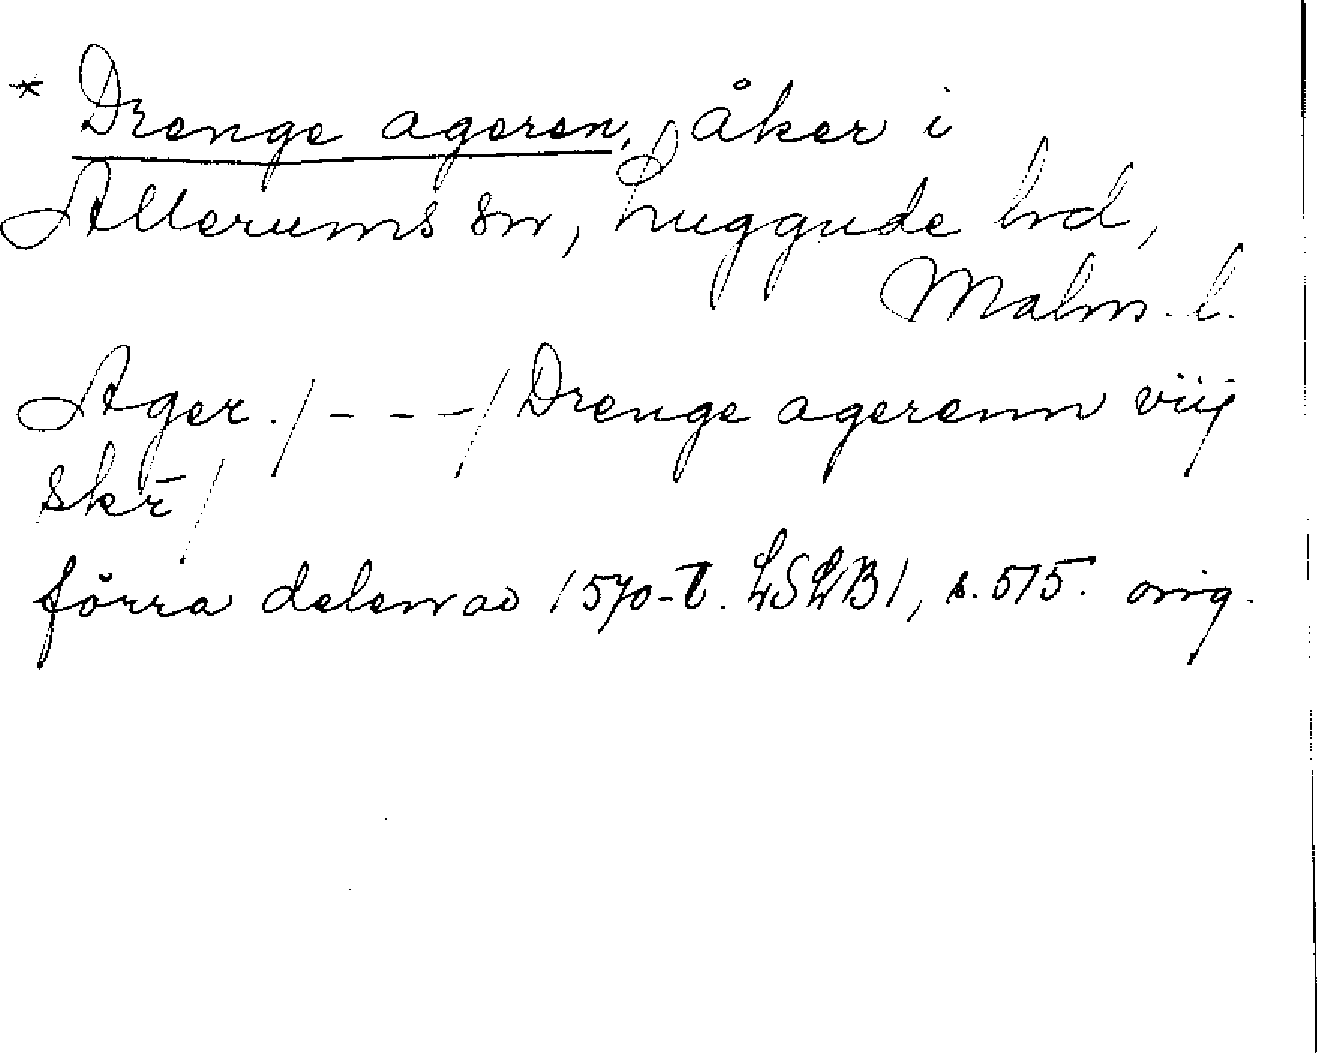 * Drenge ageren, åker i
Allerums sn, Luggude hd,
Malm. l.
Ager. / - - - / Drenge agerenn viij
skr̄ /
förra delen av 1570-t. LSLB1, s. 515. orig.